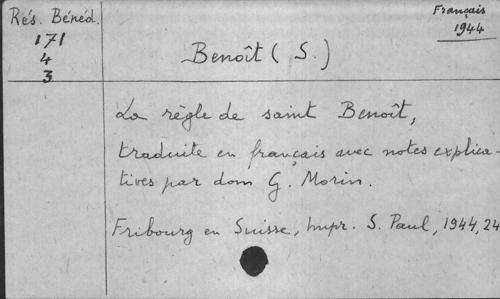 Rés. Bénéd.
171
4
3
Français
1944
Benoît (S.)
La règle de saint Benoît,
traduite en français avec notes explica-
tives par dom G. Morin.
Fribourg en Suisse, Impr. S. Paul, 1944, 24